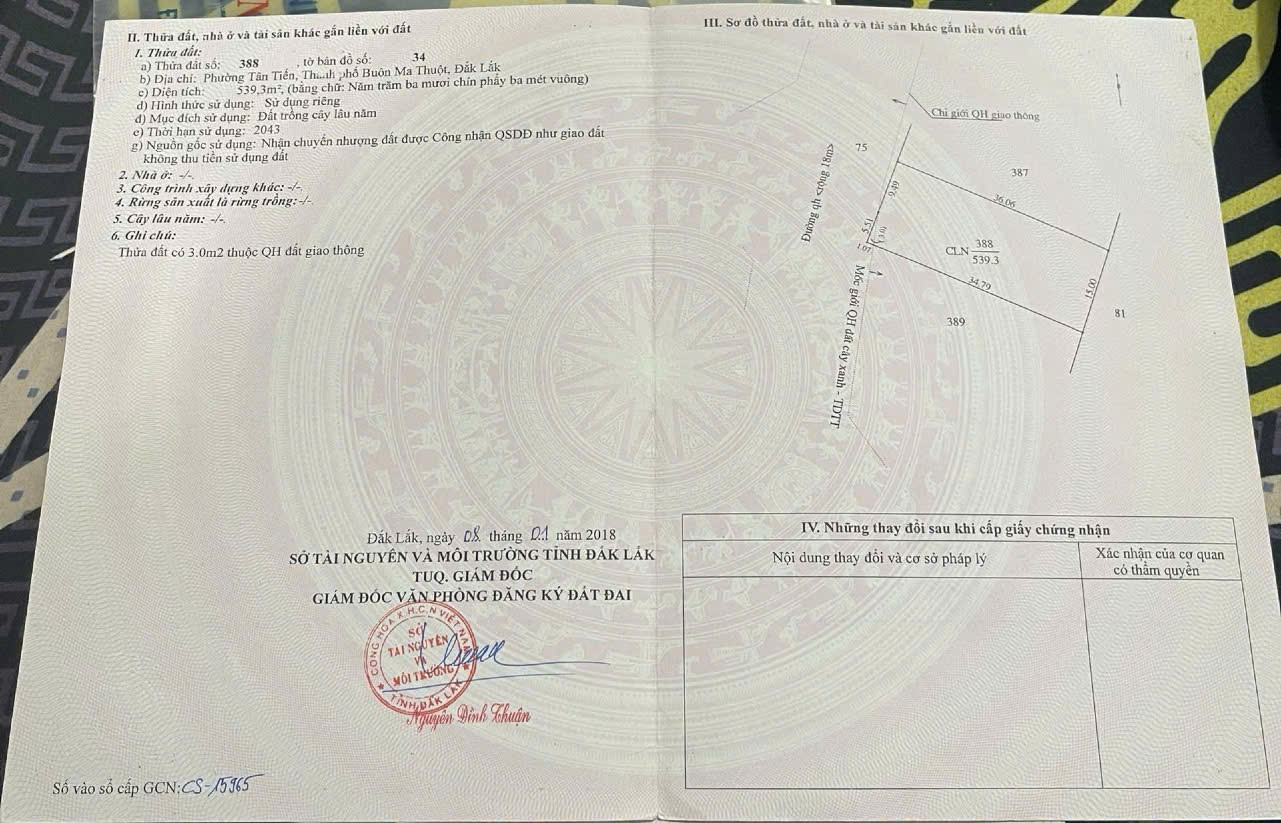 II. Thửa đất, nhà ở và tài sản khác gắn liền với đất
1. Thửa đất:
a) Thửa đất số: 388 , tờ bản đồ số: 34
b) Địa chỉ: Phường Tân Tiến, Thành phố Buôn Ma Thuột, Đắk Lắk
c) Diện tích: 539,3m², (bằng chữ: Năm trăm ba mươi chín phẩy ba mét vuông)
d) Hình thức sử dụng: Sử dụng riêng
đ) Mục đích sử dụng: Đất trồng cây lâu năm
e) Thời hạn sử dụng: 2043
g) Nguồn gốc sử dụng: Nhận chuyển nhượng đất được Công nhận QSDĐ như giao đất
không thu tiền sử dụng đất
2. Nhà ở: -/-.
3. Công trình xây dựng khác: -/-.
4. Rừng sản xuất là rừng trồng: -/-.
5. Cây lâu năm: -/-.
6. Ghi chú:
Thửa đất có 3.0m2 thuộc QH đất giao thông
Đắk Lắk, ngày 08 tháng 01 năm 2018
SỞ TÀI NGUYÊN VÀ MÔI TRƯỜNG TỈNH ĐẮK LẮK
TUQ. GIÁM ĐỐC
GIÁM ĐỐC VĂN PHÒNG ĐĂNG KÝ ĐẤT ĐAI
CỘNG HÒA X.H.C.N VIỆT NAM
SỞ
TÀI NGUYÊN
VÀ
MÔI TRƯỜNG
TỈNH ĐẮK LẮK
Nguyễn Đình Thuận
Số vào sổ cấp GCN: CS-15965
III. Sơ đồ thửa đất, nhà ở và tài sản khác gắn liền với đất
Chỉ giới QH giao thông
75
387
Đường qh rộng 18m
9.49
36.06
5.51
(3.0)
1.07
CLN 388
539.3
34.79
15.00
81
389
Mốc giới QH đất cây xanh - TDTT
IV. Những thay đổi sau khi cấp giấy chứng nhận
Nội dung thay đổi và cơ sở pháp lý
Xác nhận của cơ quan
có thẩm quyền